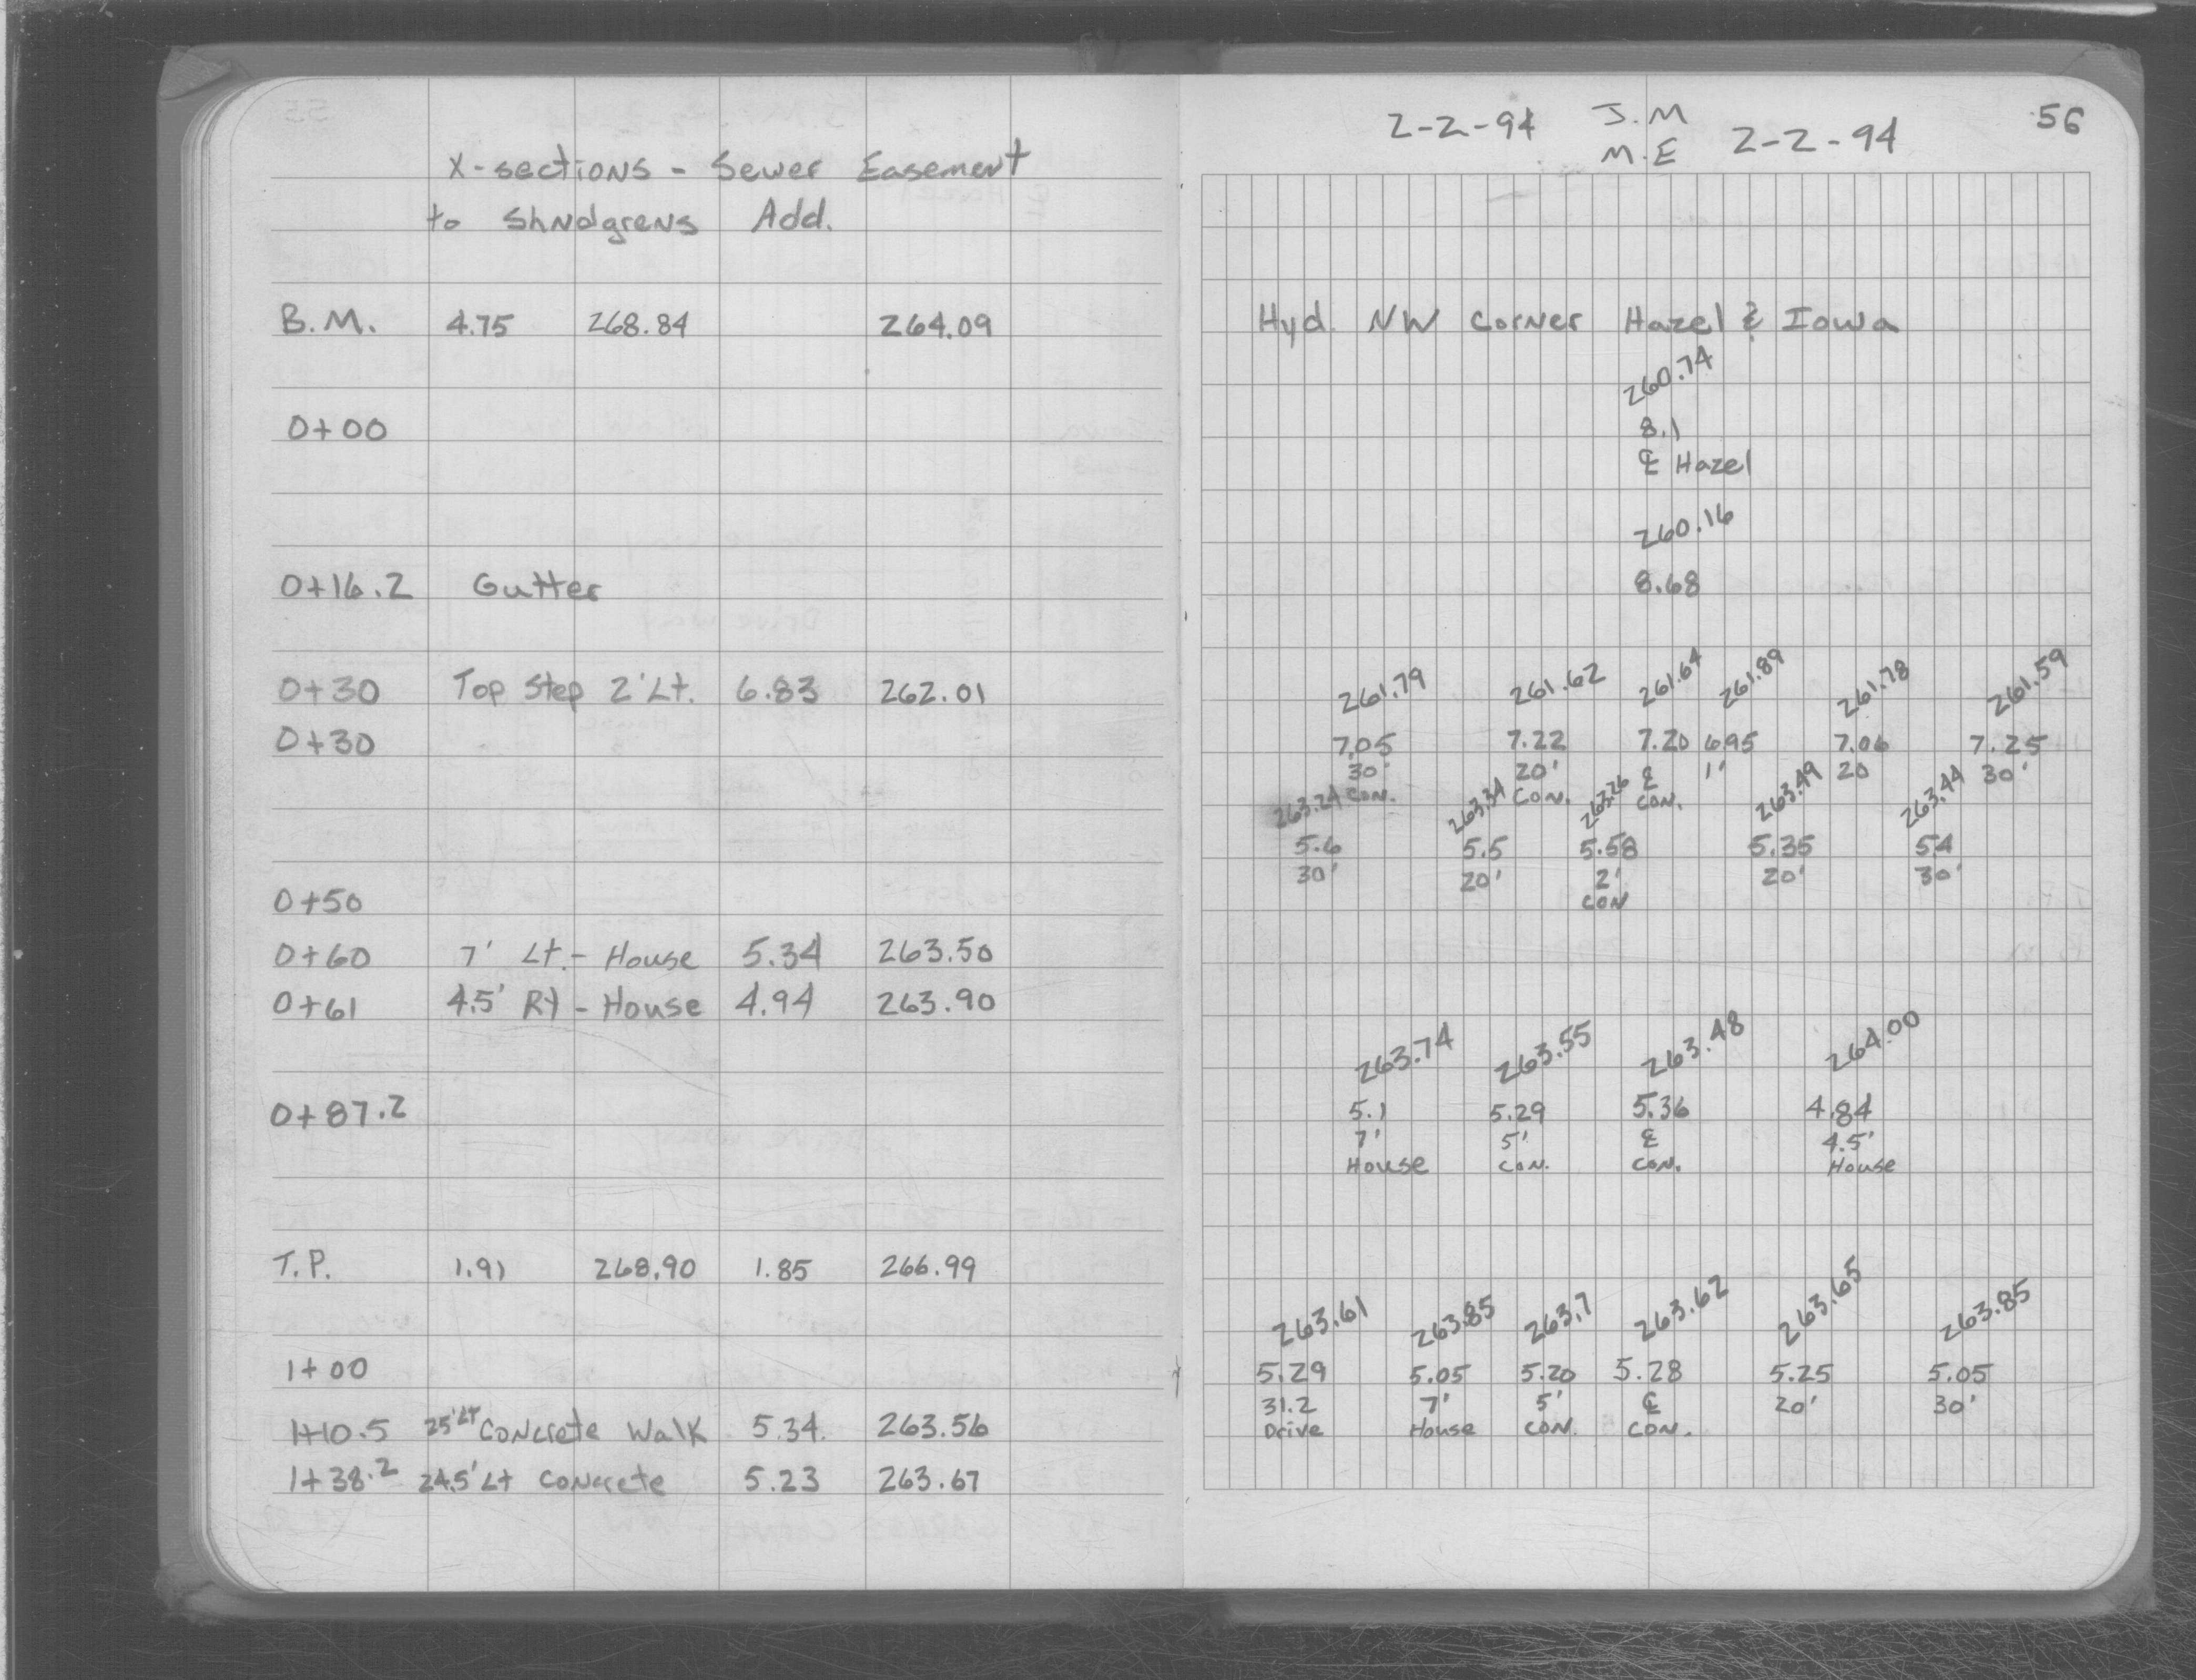 X-sections - Sewer Easement
to Shndgrens Add.
B.M. 4.75 268.84 264.09
0+00
0+16.2 Gutter
0+30 Top Step 2' Lt. 6.83 262.01
0+30
0+50
0+60 7' Lt. - House 5.34 263.50
0+61 4.5' Rt - House 4.94 263.90
0+87.2
T.P. 1.91 268.90 1.85 266.99
1+00
1+10.5 25' Lt Concrete Walk 5.34. 263.56
1+38.2 24.5' Lt Concrete 5.23 263.67
2-2-94 J.M 2-2-94 56
M.E
Hyd. NW Corner Hazel & Iowa
260.74
8.1
℄ Hazel
260.16
8.68
261.79 261.62 261.64 261.89 261.78 261.59
7.05 7.22 7.20 6.95 7.06 7.25
30' 20' ℄ 1' 20 30'
CON. CON. CON.
263.24 263.34 263.26 263.49 263.44
5.6 5.5 5.58 5.35 5.4
30' 20' 2' 20' 30'
CON
263.74 263.55 263.48 264.00
5.1 5.29 5.36 4.84
7' 5' ℄ 4.5'
House CON. CON. House
263.61 263.85 263.7 263.62 263.65 263.85
5.29 5.05 5.20 5.28 5.25 5.05
31.2 7' 5' ℄ 20' 30'
Drive House CON. CON.